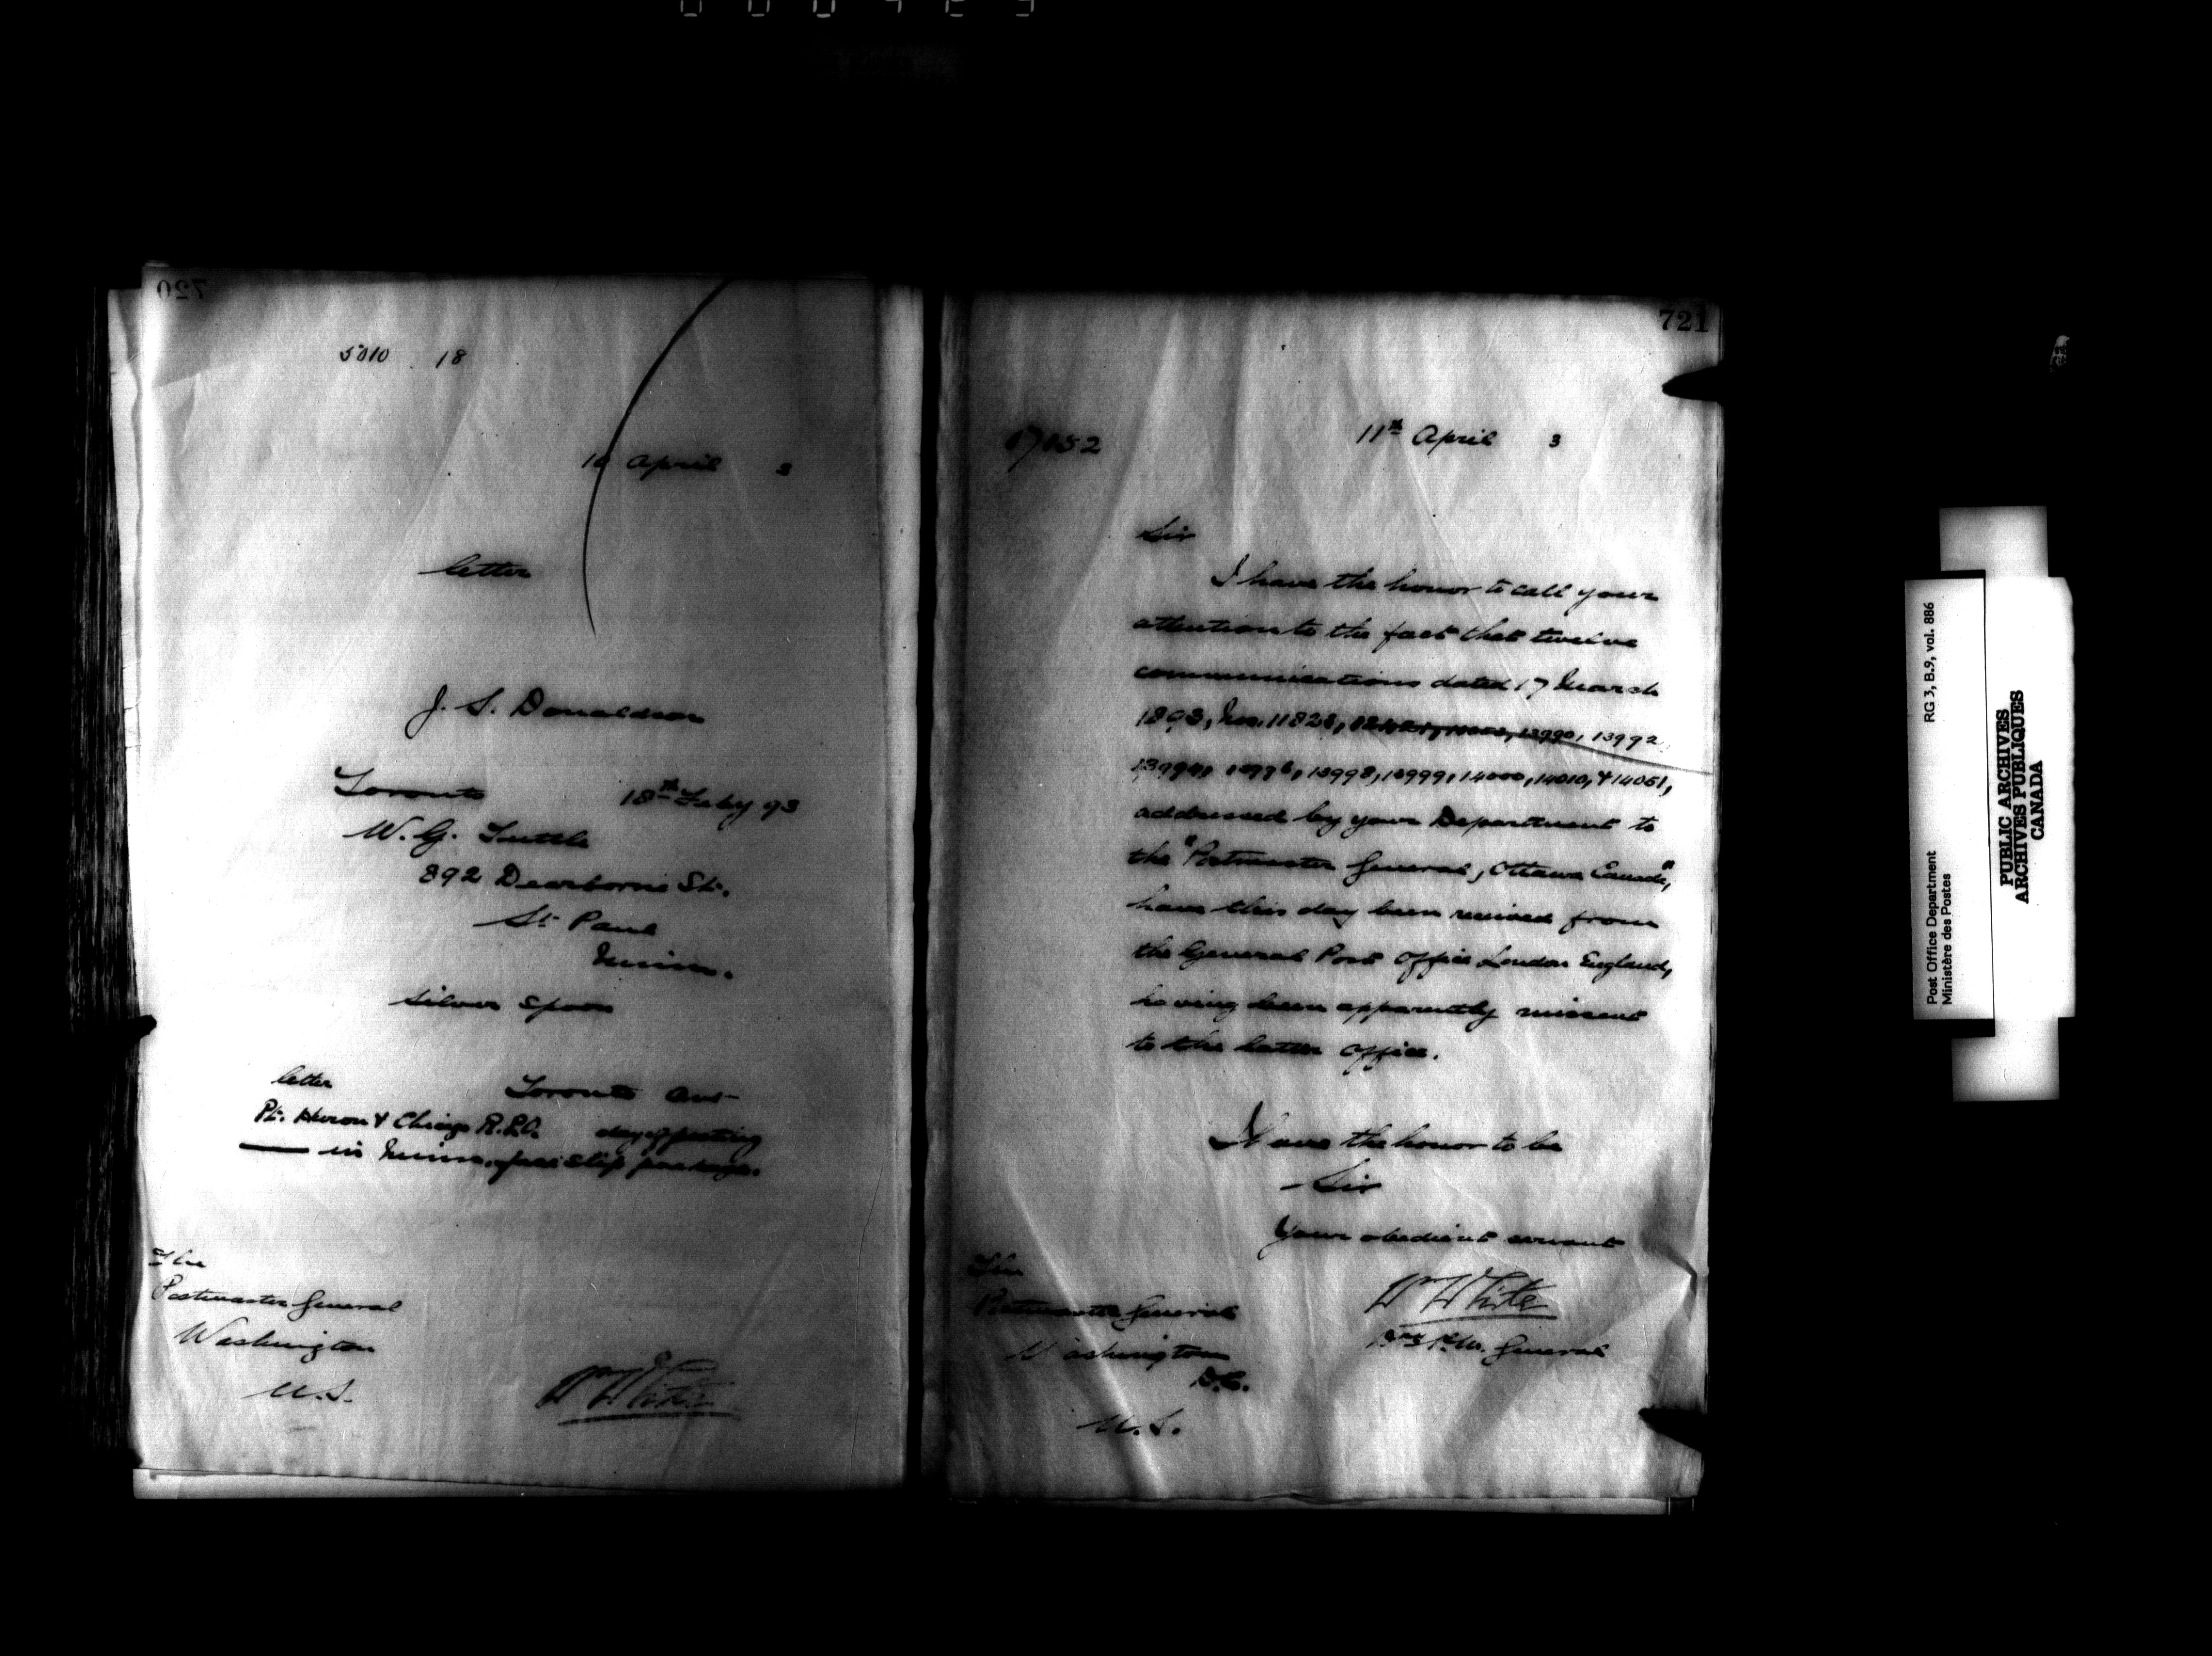 720
5010 18
10 April 3
letter
J. S. Donaldson
Toronto 18th Feby 93
W. G. Tuttle
892 Dearborne St.
St Paul
Minn.
Silver Spoon
letter Toronto
Pt. Huron & Chicago R.P.O. day of posting
in Minn. package.
The
Postmaster General
Washington
U.S.
Wm White
721
11th April 3
Sir
I have the honor to call your
attention to the fact that twelve
communications dated 17 March
1893, Nos. 11828, 13990, 13992,
13996, 13998, 13999, 14000, 14010, & 14061,
addressed by your Department to
the "Postmaster General, Ottawa Canada",
have this day been received from
the General Post Office London England,
having been apparently missent
to the latter office.
I have the honor to be
Sir
Your obedient servant
Wm White
P.M. General
The
Postmaster General
Washington
D.C.
U.S.
Post Office Department RG 3, B.9, vol. 886
Ministère des Postes
PUBLIC ARCHIVES
ARCHIVES PUBLIQUES
CANADA